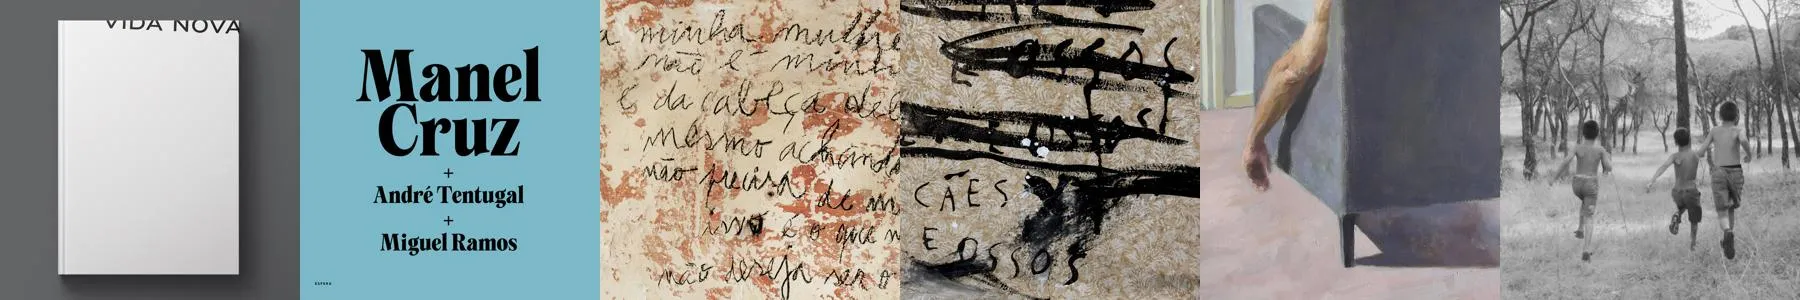 VIDA NOVA
Manel
Cruz
+
André Tentugal
+
Miguel Ramos
ESFERA
a minha mulher
não é minha
é da cabeça dela
mesmo achando
não precisa de m
isso é o que n
não deseja ser o
CÃES
E OSSOS